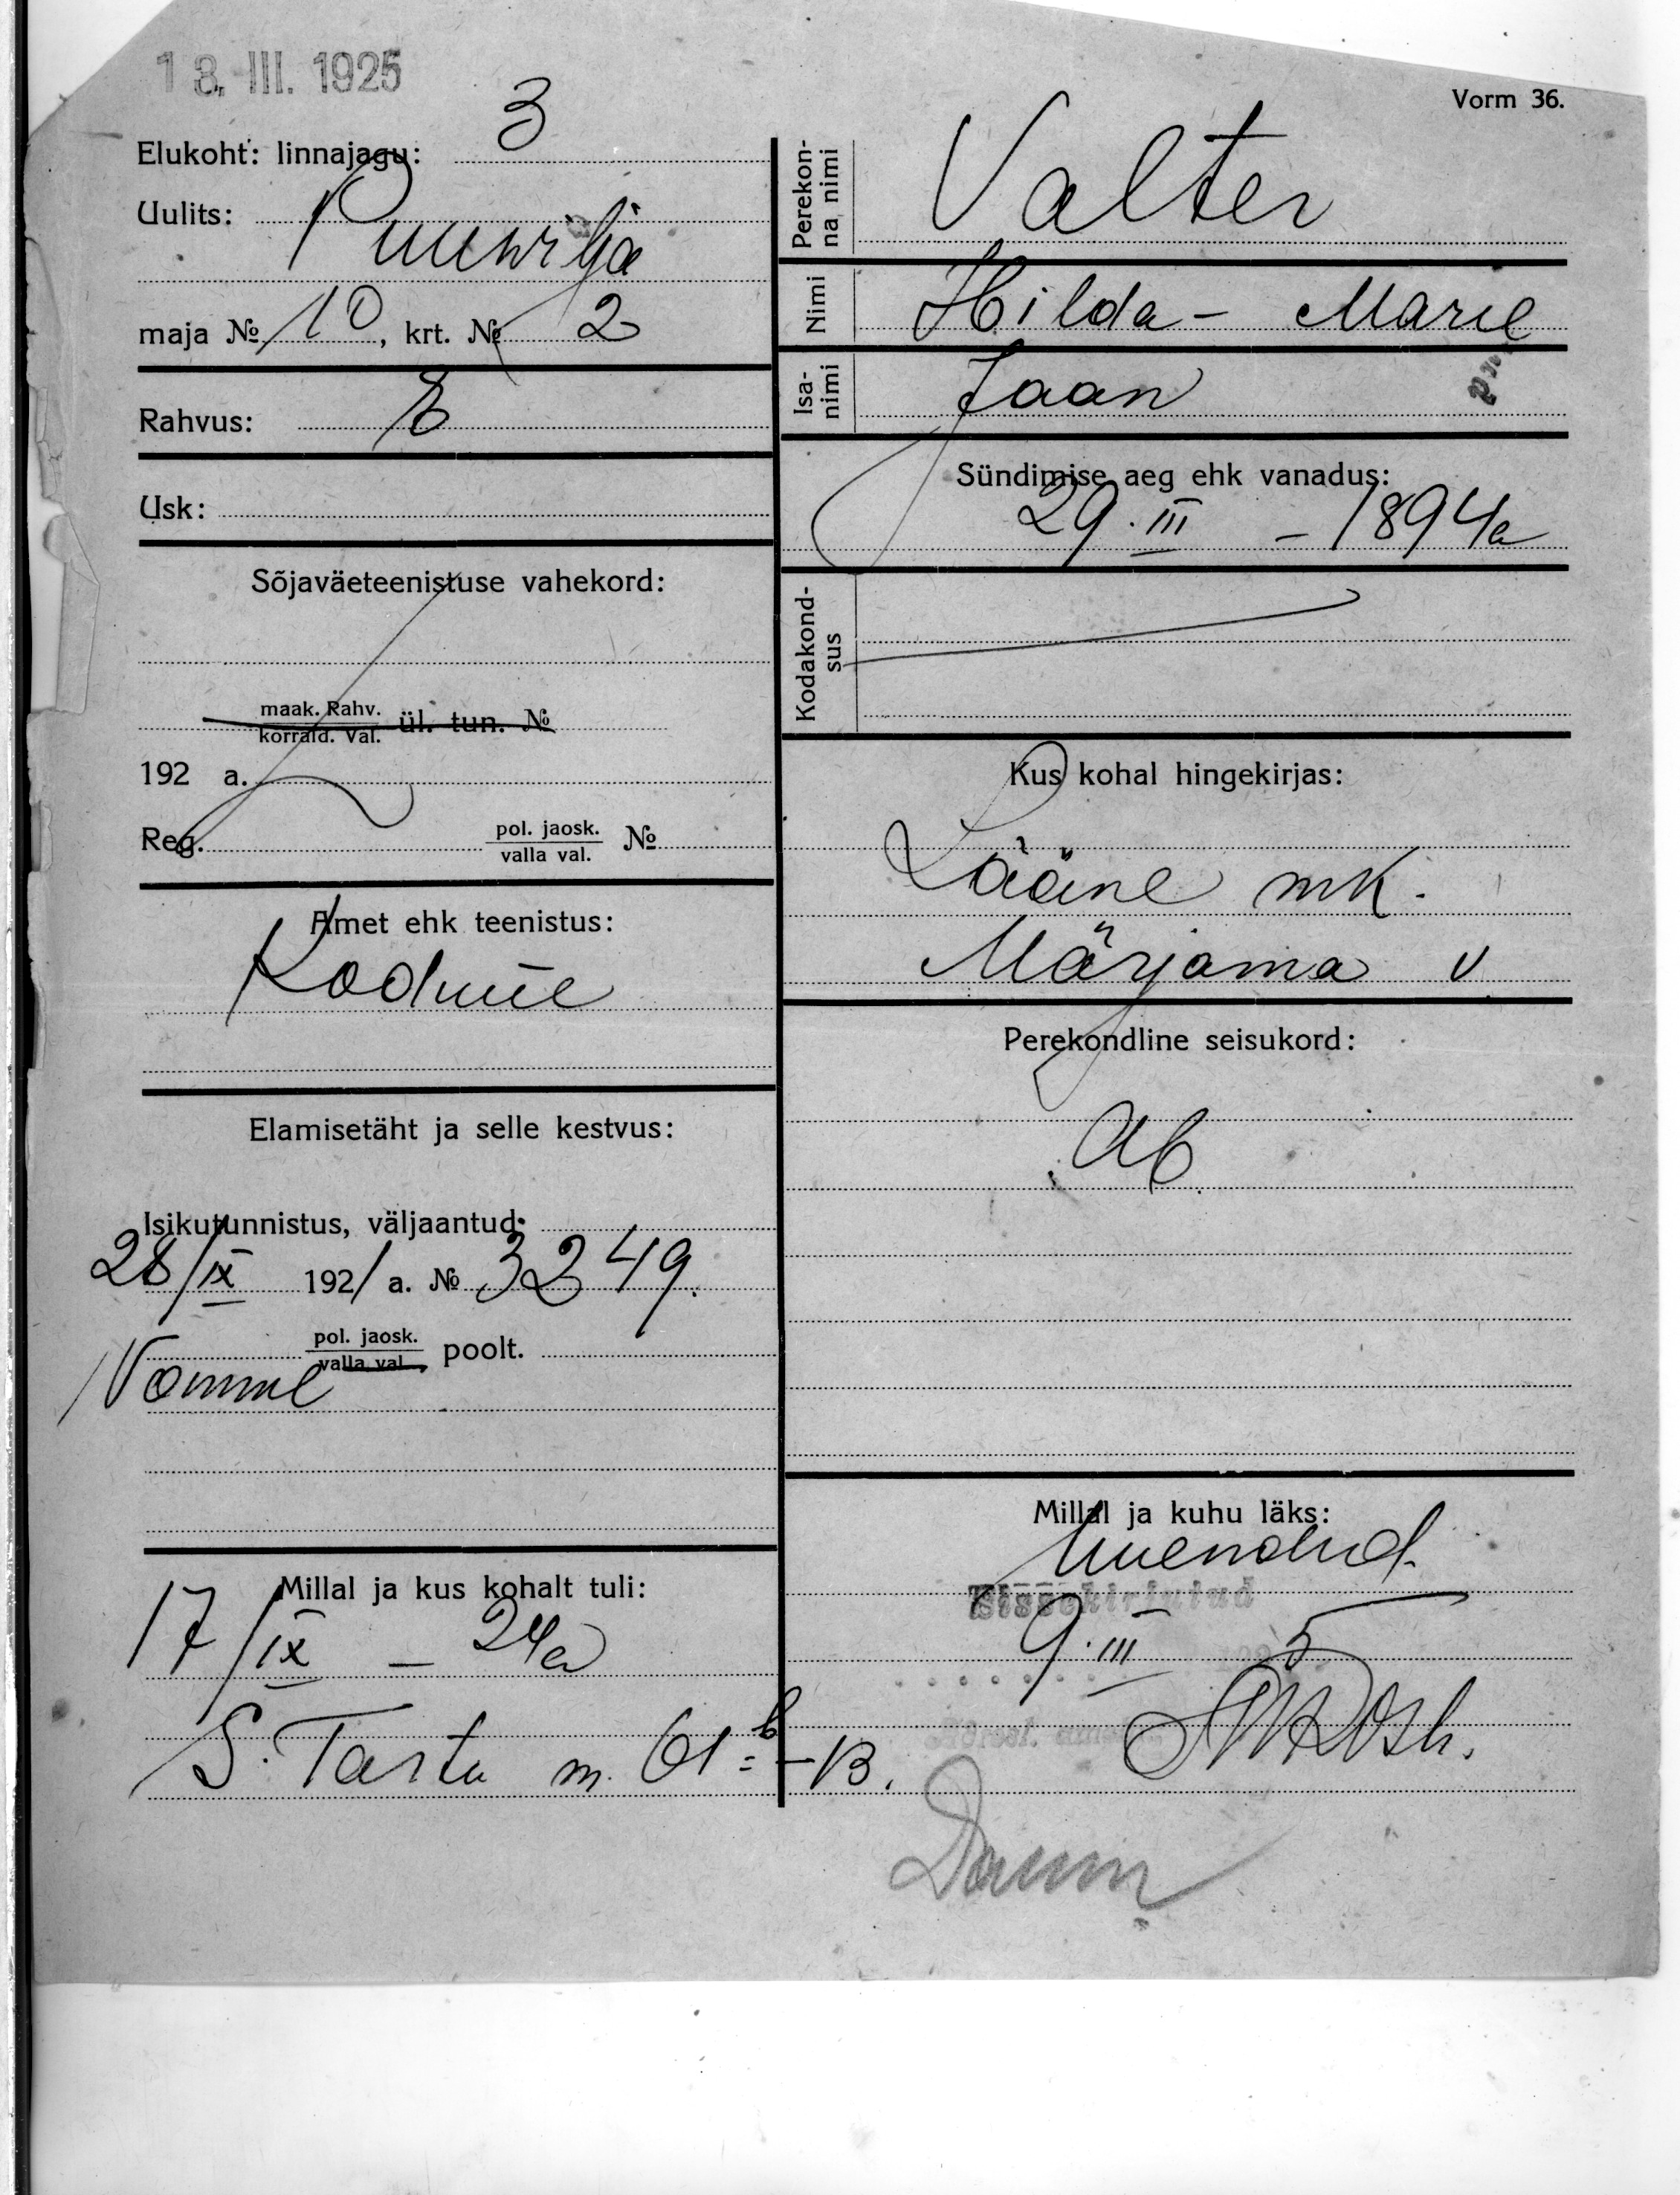 13. III. 1925
Vorm 36.
Elukoht: linnajagu: 3
Uulits: Puuwilja
maja № 10, krt. № 2
Rahvus: E
Usk:
Sõjaväeteenistuse vahekord:
maak. Rahv.
korrald. Val. ül. tun. №
192 a.
Reg. pol. jaosk. №
valla val.
Amet ehk teenistus:
Kodune
Elamisetäht ja selle kestvus:
Isikutunnistus, väljaantud:
28/IX 1921 a. № 3249.
pol. jaosk. poolt.
valla val.
Nõmme
Millal ja kus kohalt tuli:
17/IX – 24a
S. Tartu m. 61=b–13.
Perekon-
na nimi Valter
Nimi Hilda - Marie
Isa-
nimi Jaan
Sündimise aeg ehk vanadus:
29. III – 1894a
Kodakond-
sus
Kus kohal hingekirjas:
Lääne mk.
Märjama v
Perekondline seisukord:
Ab.
Millal ja kuhu läks:
Uuendud.
Sissekirjutud
9. III 5